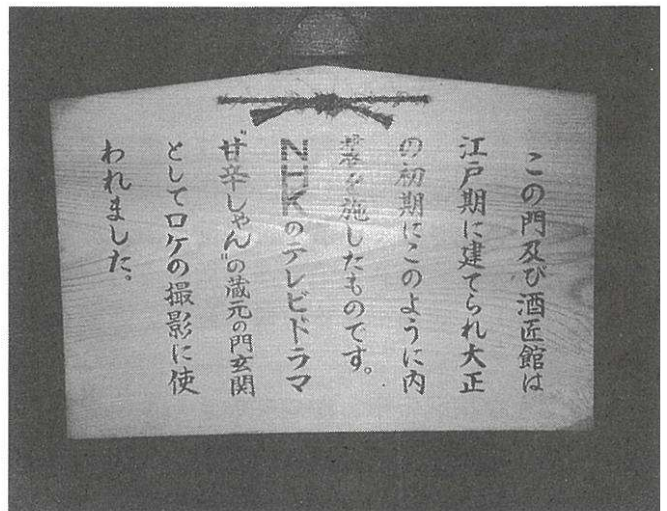 この門及び酒匠館は
江戸期に建てられ大正
の初期にこのように内
装を施したものです。
NHKのテレビドラマ
"甘辛しゃん"の蔵元の門玄関
としてロケの撮影に使
われました。